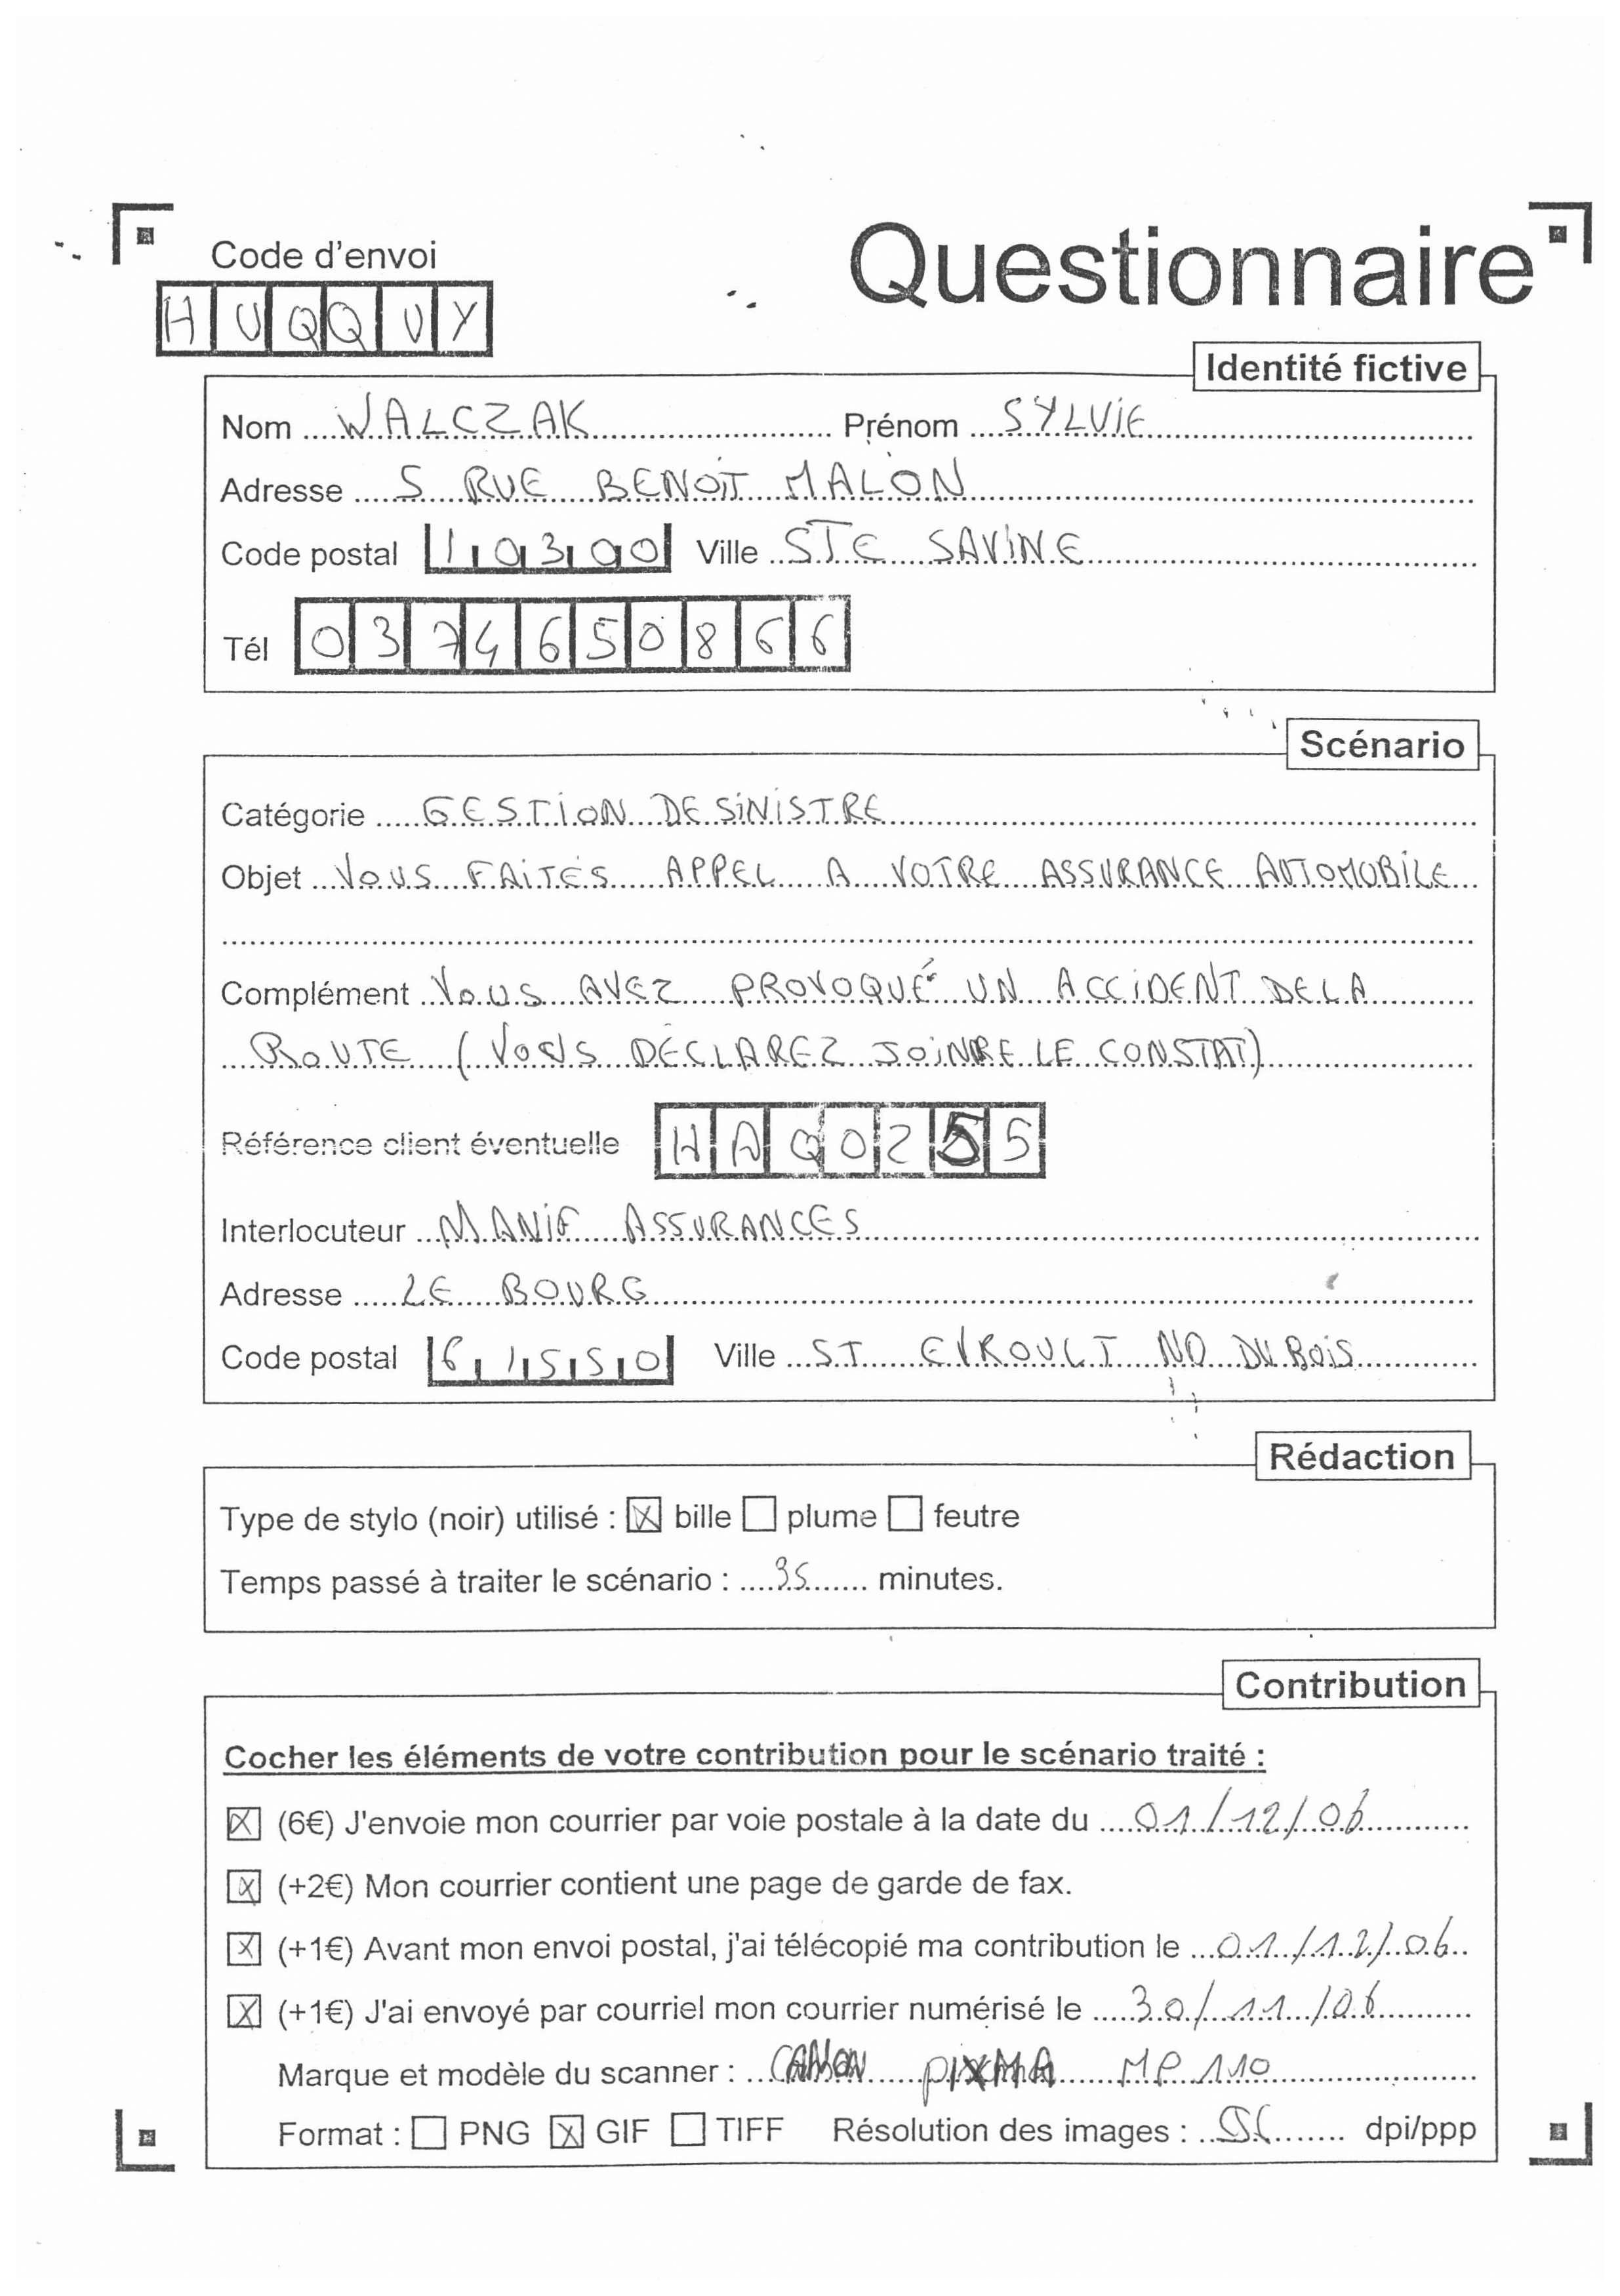 Code d'envoi
Questionnaire
HUQQUY
Identité fictive
Nom WALCZAK Prénom SYLVIE
Adresse 5 RUE BENOÎT MALON
Code postal 10300 Ville STE SAVINE
Tél 0374650866
Scénario
Catégorie GESTION DE SINISTRE
Objet VOUS FAITES APPEL A VOTRE ASSURANCE AUTOMOBILE
Complément VOUS AVEZ PROVOQUÉ UN ACCIDENT DE LA
ROUTE (VOUS DECLAREZ JOINDRE LE CONSTAT)
Référence client éventuelle HAQ0255
Interlocuteur MANIF ASSURANCES
Adresse LE BOURG
Code postal 61550 Ville ST EVROULT ND DU BOIS
Rédaction
Type de stylo (noir) utilisé : ☒ bille ☐ plume ☐ feutre
Temps passé à traiter le scénario : 35 minutes.
Contribution
Cocher les éléments de votre contribution pour le scénario traité :
☒ (6€) J'envoie mon courrier par voie postale à la date du 01/12/06
☒ (+2€) Mon courrier contient une page de garde de fax.
☒ (+1€) Avant mon envoi postal, j'ai télécopié ma contribution le 01/12/06
☒ (+1€) J'ai envoyé par courriel mon courrier numérisé le 30/11/06
Marque et modèle du scanner : CANON PIXMA MP 110
Format : ☐ PNG ☒ GIF ☐ TIFF Résolution des images : dpi/ppp